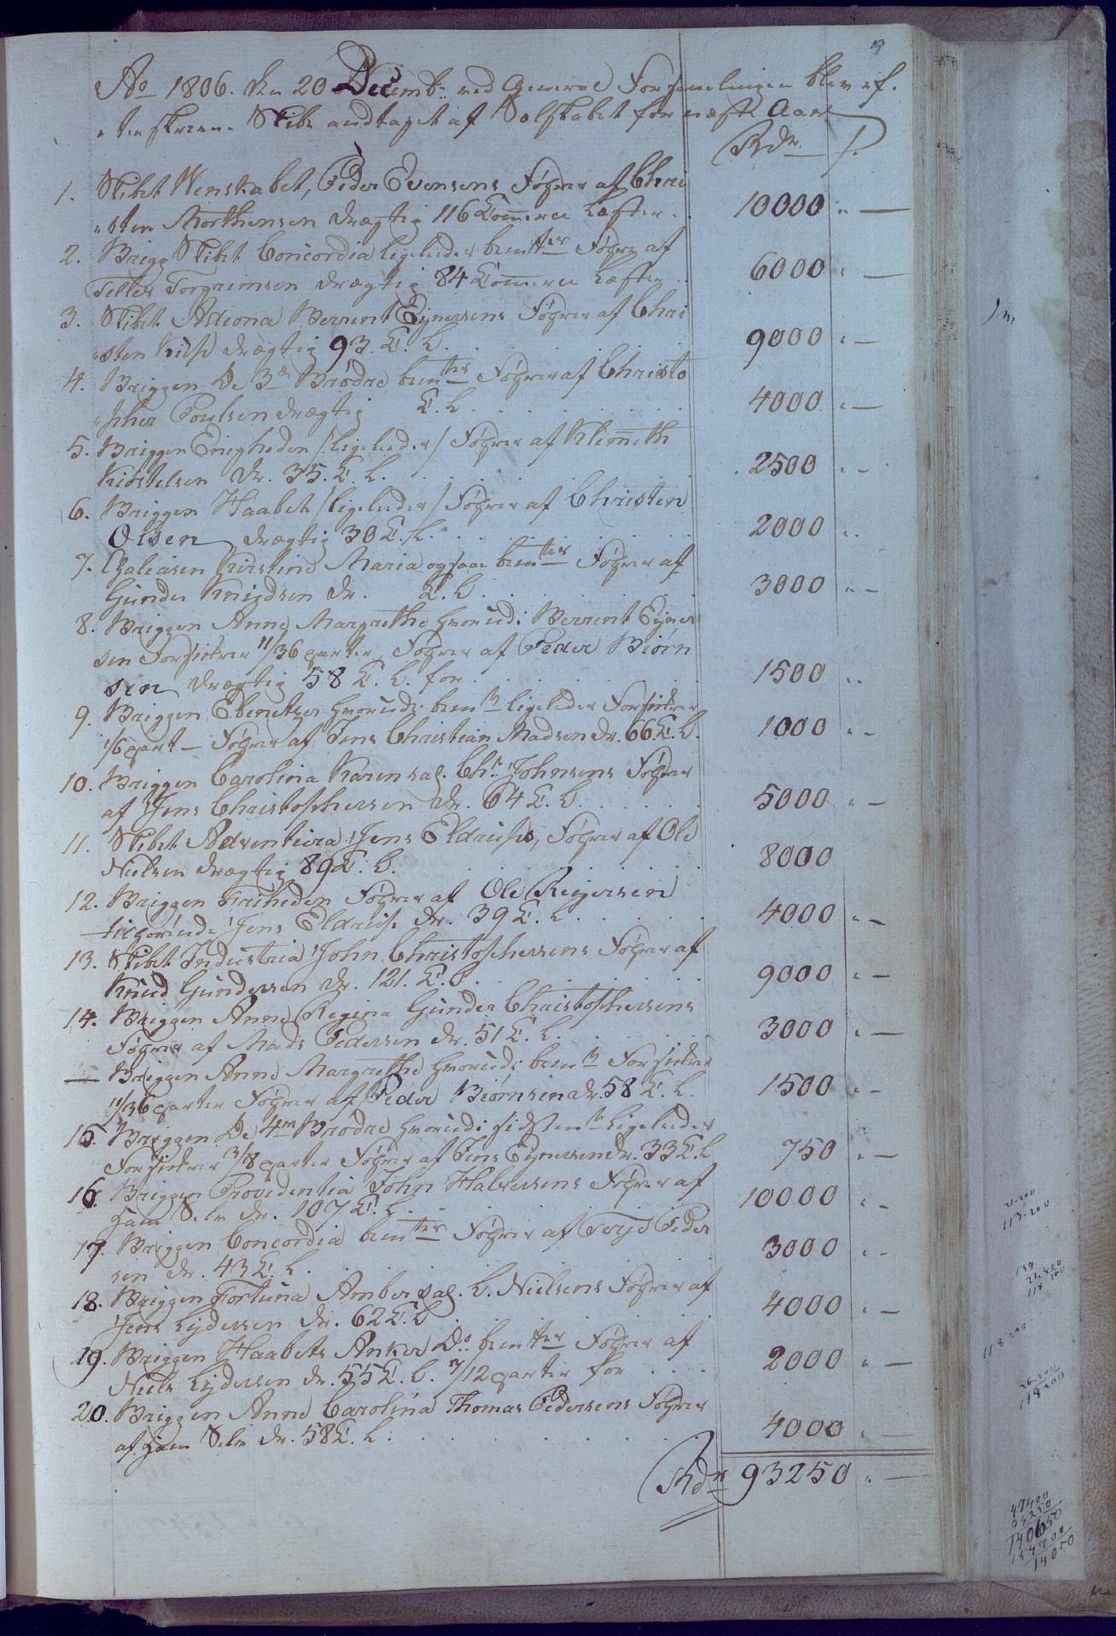 Ao 1806. den 20 Decemb: ved General Forsamlingen blev ef-
terskrevne Skibe andtaget af Sælskabet for næste Aar
Rdr ß.
1. Skibet Wenskabet, Peder Evensens Fører af Chri
sten Morthensen drægtig 116 Commerce Læster 10000
2. Brigg Skibet Concordia ligeledes bemte Fører af
Tellef Torgrimsen drægtig 84 Commerce Læster 6000
3. Skibet Berrent Eynersens Fører af Chri
sten drægtig 93. C. L. 9000
4. Briggen De 3de Brødre bemtes Fører af Christo
pher Poulsen drægtig C. L. 4000
5. Briggen Enigheden /:ligeledes/ Fører af Klemeth
Kiøstelsen Dr. 35. C. L. 2500
6. Briggen Haabet /ligeledes/ Fører af Christen
Olsen drægtig 30 C. L. 2000
7. Galeasen Kirstine Maria ogsaa bemtes Fører af
Gunder Knudsen Dr. C. L. 3000
8. Briggen Anne Margrethe hvorudi Berrent Eyner
sen Forsickrer 11/36 parter, Fører af Peder Biørn
sen drægtig 58 C. L. for 1500
9. Briggen Ebenetzer hvorudi bemte ligeledes Forsickrer
1/6 part - Fører af Jens Christian Madsen Dr. 66 C. L. 1000
10. Briggen Carolina Karen sal. Chr. Johnsens Fører
af Jens Christophersen Dr. 64 C. L. 5000
11. Skibet Adventura Jens Fører af Ole
Nielsen drægtig 89 C. L. 8000
12. Briggen Friheden Fører af Ole Reyersen
tilhørende Jens Dr. 39 C. L. 4000
13. Skibet Industria John Christophersens Fører af
Knud Gundersen Dr. 121. C. L. 9000
14. Briggen Anne Regina Gunder Christophersens
Fører af Mads Pedersen Dr. 51 C. L. 3000
— Briggen Anne Margrethe hvorudi bemte Forsickrer
11/36 parter Fører af Peder Biørnsen dr. 58 C. L. 1500
15. Briggen De 4re Brødre hvorudi sidstente Ligeledes
Forsickrer 3/8 parter Fører af Jens Eynersen dr. 33 C. L. 750
16. Briggen Providentia John Halvorsens Fører af
ham Selv Dr. 107 C. L. 10000
17. Briggen Concordia bemtes Fører af Terje Peder
sen Dr. 43 C. L. 3000
18. Briggen Fortuna Amber sal. L. Nielsens Fører af
Jens Lydersen Dr. 62 C. L. 4000
19. Briggen Haabets Anker Do bemtes Fører af
Niels Lydersen Dr. 55 C. L. 7/12 parter for 2000
20. Briggen Anne Carolina Thomas Pedersens Fører
af ham Selv Dr. 58 C. L. 4000
Rdr 93250